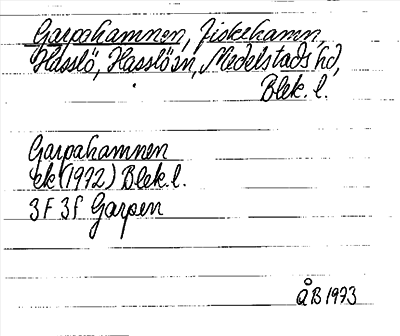 Garpahamnen, fiskehamn,
Hasslö, Hasslö sn, Medelstads hd,
Blek. l.
Garpahamnen
ek (1972) Blek. l.
3F 3f Garpen
ÅB 1973